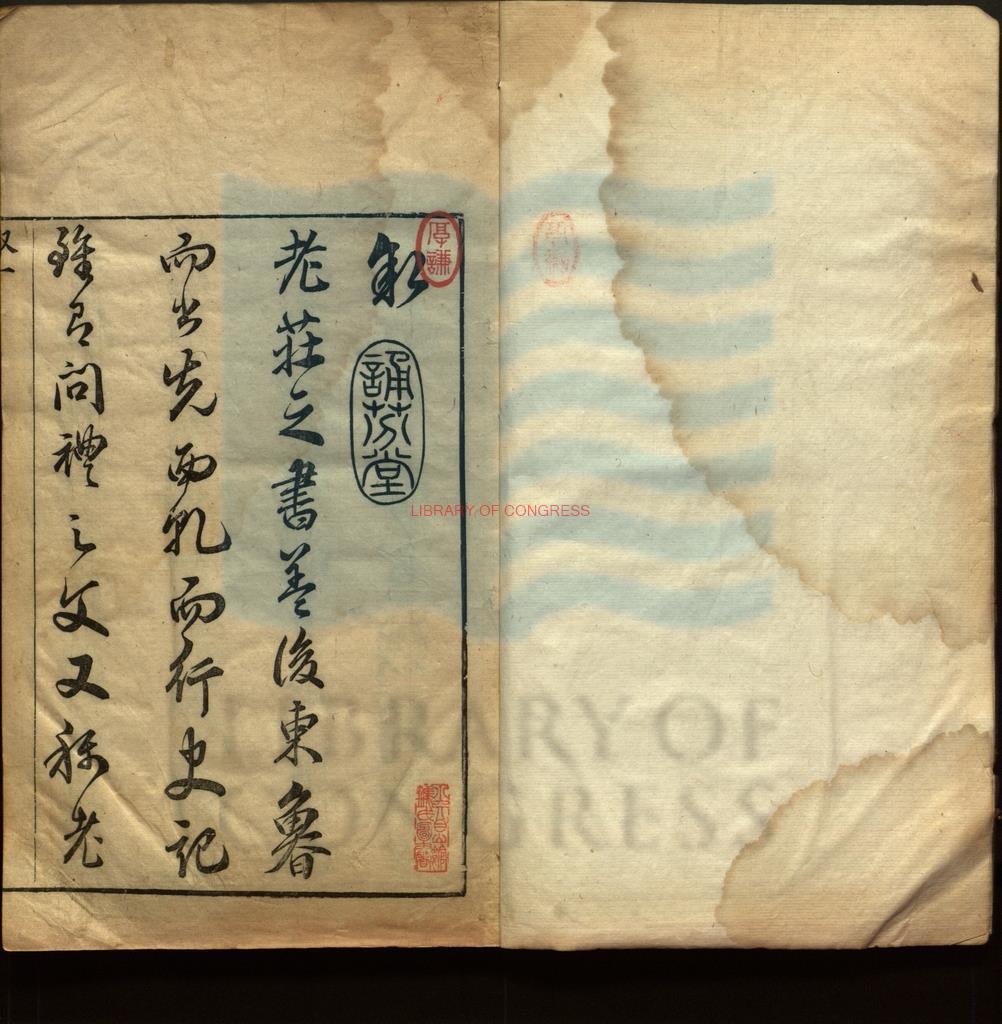 叙
厚謙
誦芬堂
老莊之書蓋後東魯
而出先西乾而行史記
雖有問禮之文又稱老
LIBRARY OF CONGRESS
LIBRARY OF
CONGRESS